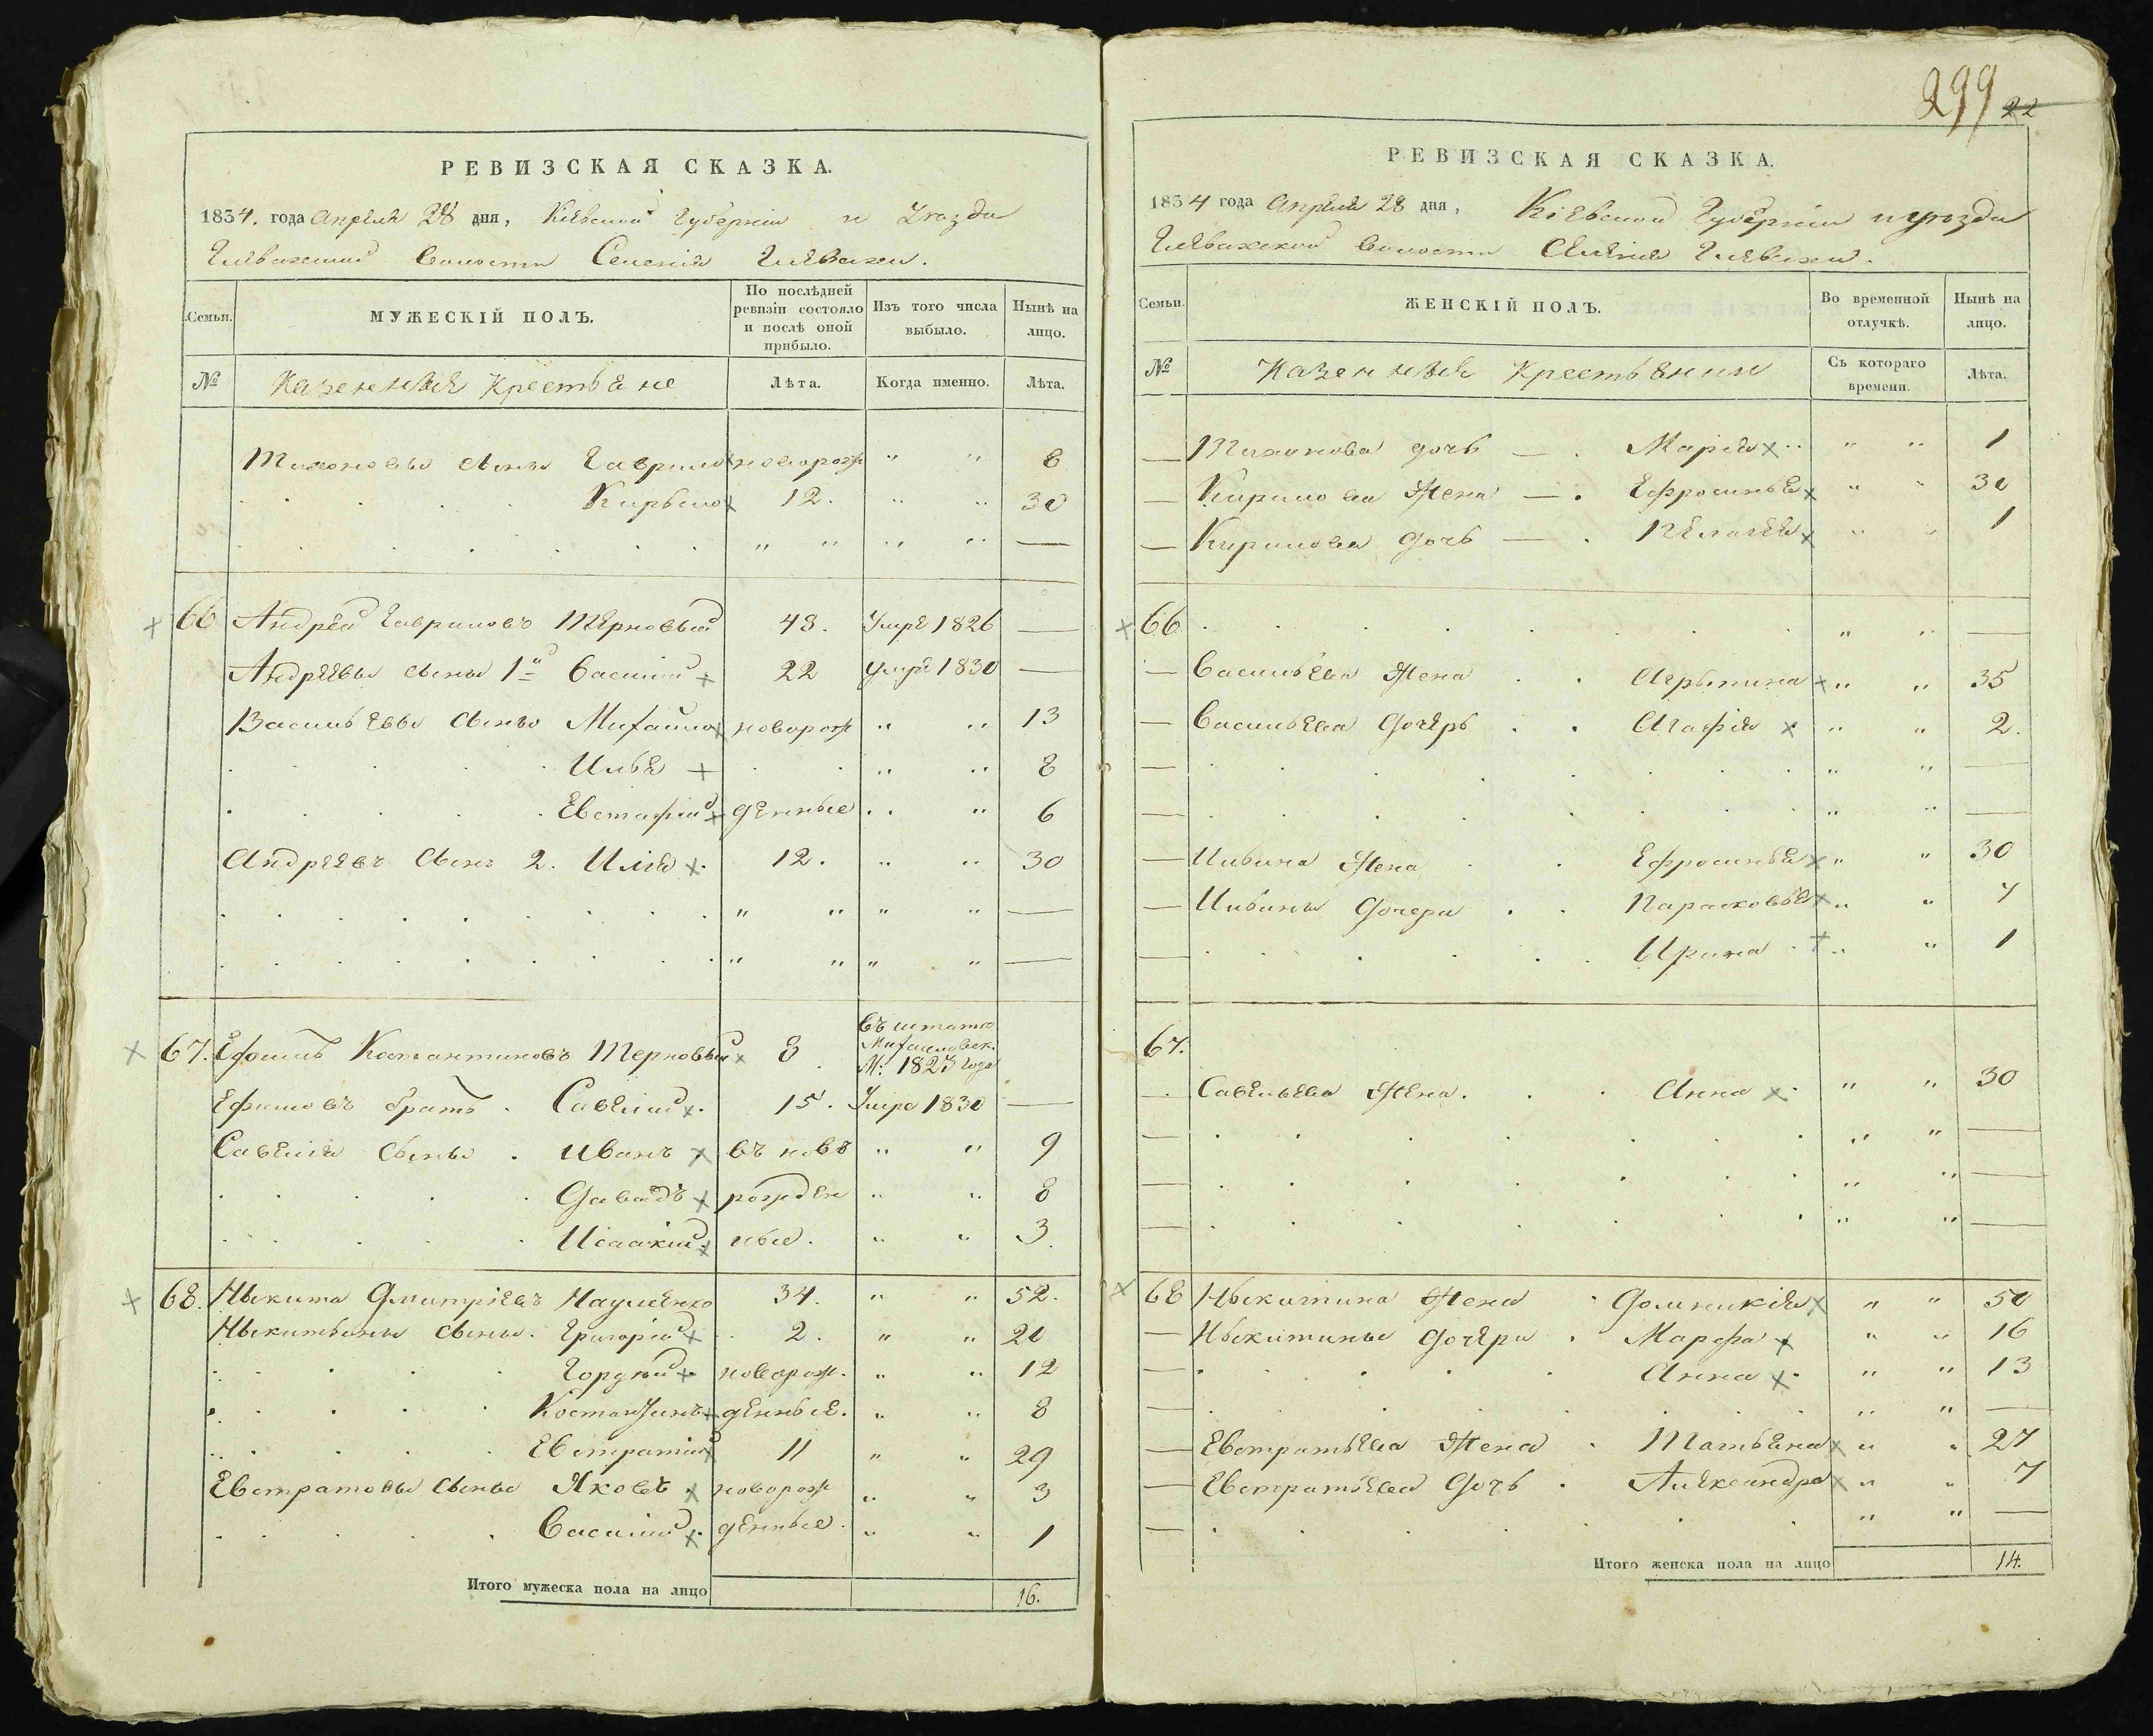 РЕВИЗСКАЯ СКАЗКА.
1834. года Апреля 28 дня, Кіевской Губерніи и Уезда
Глевахской Волости Селенія Глевахи.
Семьи. МУЖЕСКІЙ ПОЛЪ. По послѣдней ревизіи состояло и послѣ оной прибыло. Изъ того числа выбыло. Нынѣ на лицо.
№ Казенные Крестьяне Лѣта. Когда именно. Лѣта.
Тихоновы сыны Гаврило новорож " " 8
Кирыло 12. " " 30
" " " " —
66 Андрей Гавриловъ Терновый 43. Умре 1826 —
Андреевы сыны 1й Василій 22 Умре 1830 —
Васильевы сыны Михайло новорож " " 13
Илья " " 8
Евстафій денные " " 6
Андреевъ сынъ 2. Илія 12. " " 30
" " " " —
" " " " —
67. Ефимъ Костантиновъ Терновый 8 въ штатъ Михайловск. М: 1823 года
Ефимовъ братъ Савелій 15. Умре 1830 —
Савелія сыны Иванъ въ нове " " 9
Давидъ рожден " " 8
Исаакій ные. " " 3
68. Никита Дмитріевъ Науменко 34. " " 52.
Никитины сыны. Григорій 2. " " 20
Гордѣй новорож. " " 12
Костантинъ денные. " " 8
Евстратій 11 " " 29
Евстратовы сыны Яковъ новорож " " 3
Василій денные. " " 1
Итого мужеска пола на лицо 16.
299 22
РЕВИЗСКАЯ СКАЗКА.
1834 года Апреля 28 дня, Кіевской Губерніи и уезда
Глевахской Волости Селенія Глевахи.
Семьи. ЖЕНСКІЙ ПОЛЪ. Во временной отлучкѣ. Нынѣ на лицо.
№ Казенные Крестьянки Съ котораго времени. Лѣта.
— Тихонова дочь — Марія " " 1
— Кирилова Жена — Ефросинья " " 30
— Кирилова дочь — Пелагея " " 1
66. " " —
— Васильева Жена Агрыпина " " 35
— Васильева Дочерь Агафія " " 2.
— " " —
— " " —
— Ильина Жена Ефросинья " " 30
— Ильины Дочери Парасковья " " 7
— Ирина " " 1
67.
— Савельева Жена. Анна " " 30
— " " —
— " " —
— " " —
68 Никитина Жена Домникія " " 50
— Никитины Дочери Марфа " " 16
— Анна " " 13
— " " —
— Евстратьева Жена Татьяна " " 27
— Евстратьева Дочь Александра " " 7
— " " —
Итого женска пола на лицо 14.